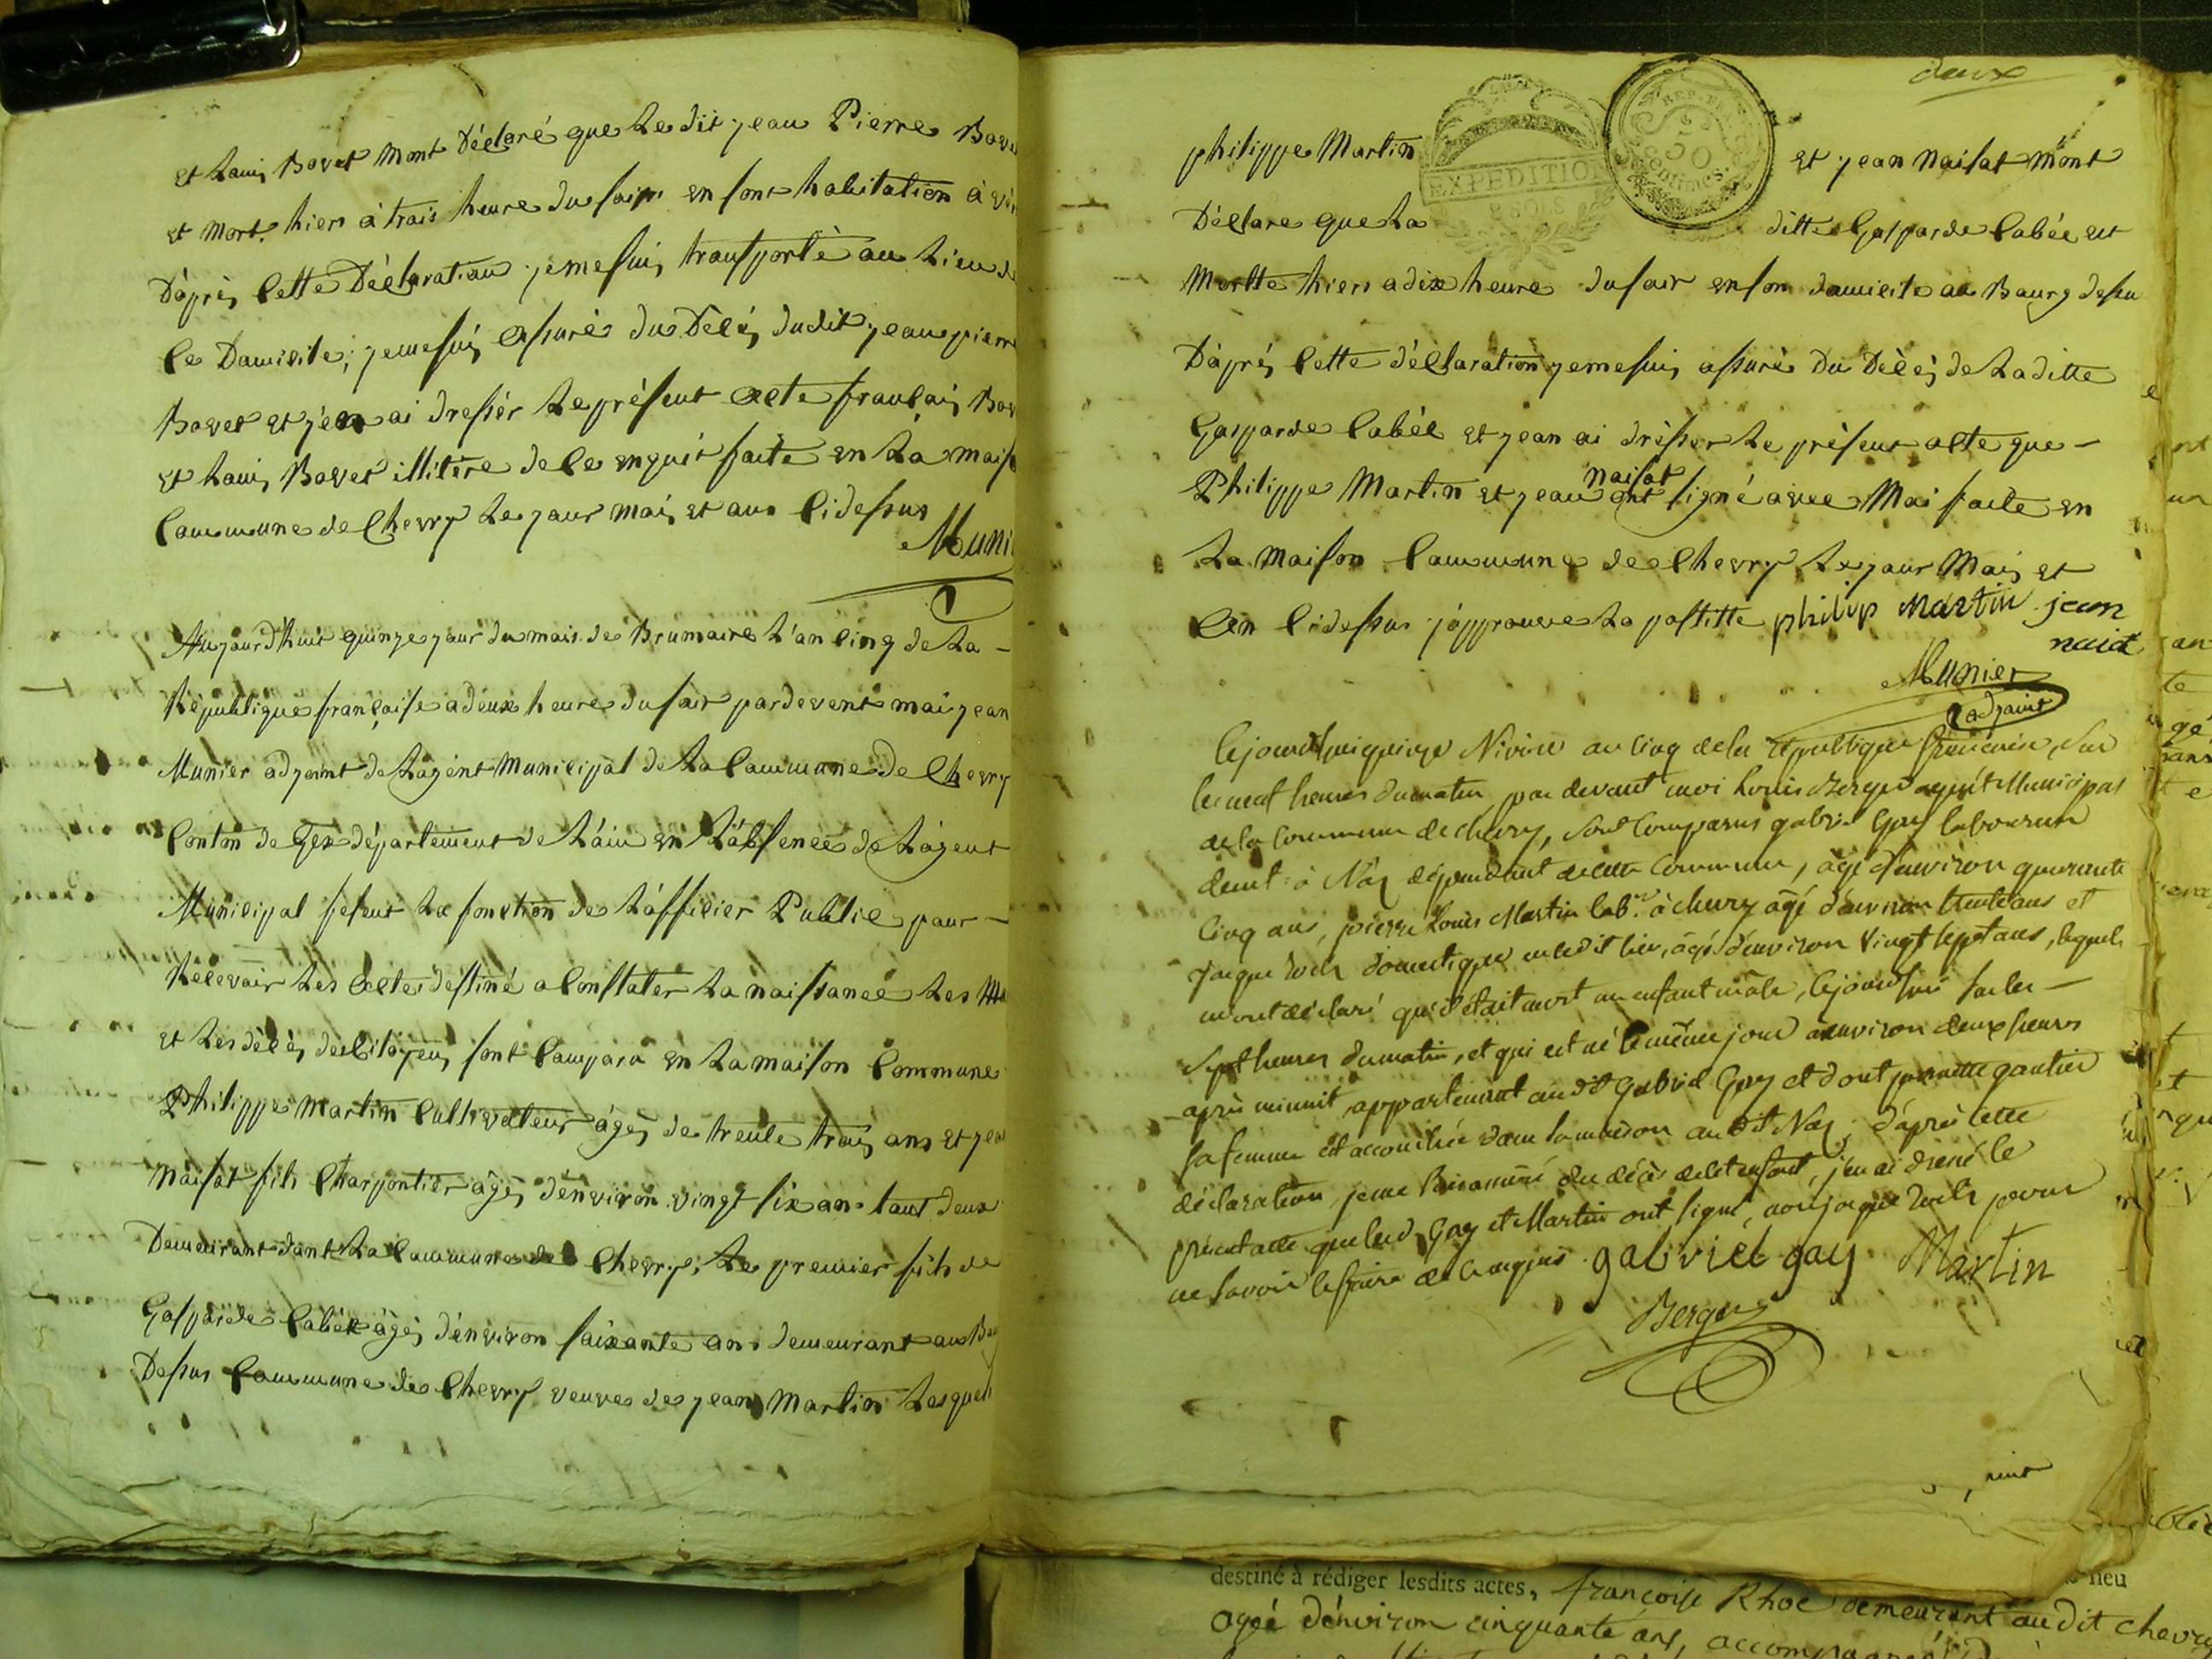 et Louis Bovet mont Déclaré que Le dit jean Pierre Bove
et Mort hier à trois heure du soir en sont habitation à
D'après Cette Déclaration je me suis transporté au Lieu de
Ce Domicile, je me suis assuré du Décés dudit jean pierre
Bovet et j'en ai dresser Le présent acte français Bov
et Louis Bovet illitére de ce enquit faite en La mais
Commune de Chevry Le jour mois et ans Cidessus
Muni
Aujourd'huit quinze jour du mois de Brumaire L'an Cinq de La -
République française a deux heure du soir pardevent moi jean
Munier adjoint de Lagent Municipal de La Commune de Chevry
Conton de Gex département de L'ain en L'absence de L'agent
Municipal fesent La fonction de L'officier Public pour -
Recevoir Les actes destiné a Constater La naissance Les
et Les décés des Citoyens sont Comparu en La maison Commune
Philippe Martin Cultivateur âgés de trente trois ans et jea
Naisat fils Charpontier âgés d'environ vingt six ans tout deux
Demeurant dant La Commune de Chevry, Le premier fils de
Gasparde Cabée âgés d'environ soixante ans demeurant au B
Dessus Commune de Chevry veuve de jean Martin Lesquel
deux
philippe Martin et jean Naisat mont
EXPEDITION
2 SOLS
REP. FRA.
50
Centimes.
Déclare que La ditte Gasparde Cabée est
Mortte hier a dix heure du soir en son domicile au Bourg dessu
D'après Cette déclaration je me suis assuré Du Décés de La ditte
Gasparde Cabée et jean ai dresser Le présent acte que -
naisat
Philippe Martin et jean ont signé avec Moi faite en
La Maison Commune de Chevry Le jour Mois et
an Cidessus j'approuve La postitte philip Martin jean
naisat
Munier
adjoint
Cejourd'hui quinze Nivose an Cinq de la république française, sur
les neuf heures du matin, par devant moi Louis Berger agent Municipal
de la Commune de chevry, sont Comparus gabriel Gay laboureur
demt à Naz dépendant de cette Commune, âgé d'environ quarante
Cinq ans, pierre Louis Martin lab.r à chevry âgé d'environ trente ans et
jaque domestique audit lieu, âgé d'environ Vingt sept ans, lequels
m'ont déclaré qu'il étoit mort un enfant mâle, cejourd'hui sur les -
Sept heures du matin, et qui est né le même jour a environ deux heures
après minuit appartenant au dit Gabriel Gay et dont pernette gautier
sa femme est accouchée dans sa maison audit Naz, d'après cette
déclaration, je me suis assuré du décès de cet enfant, j'en ai dressé le
présent acte que lesd. Gay et Martin ont signé, non jaque pour
ne savoir le faire de ce enquis gabriel gay Martin
Berger
destiné à rédiger lesdits actes, françoise Rhoc demeurant au dit chevry
lieu
agée d'environ cinquante ans,